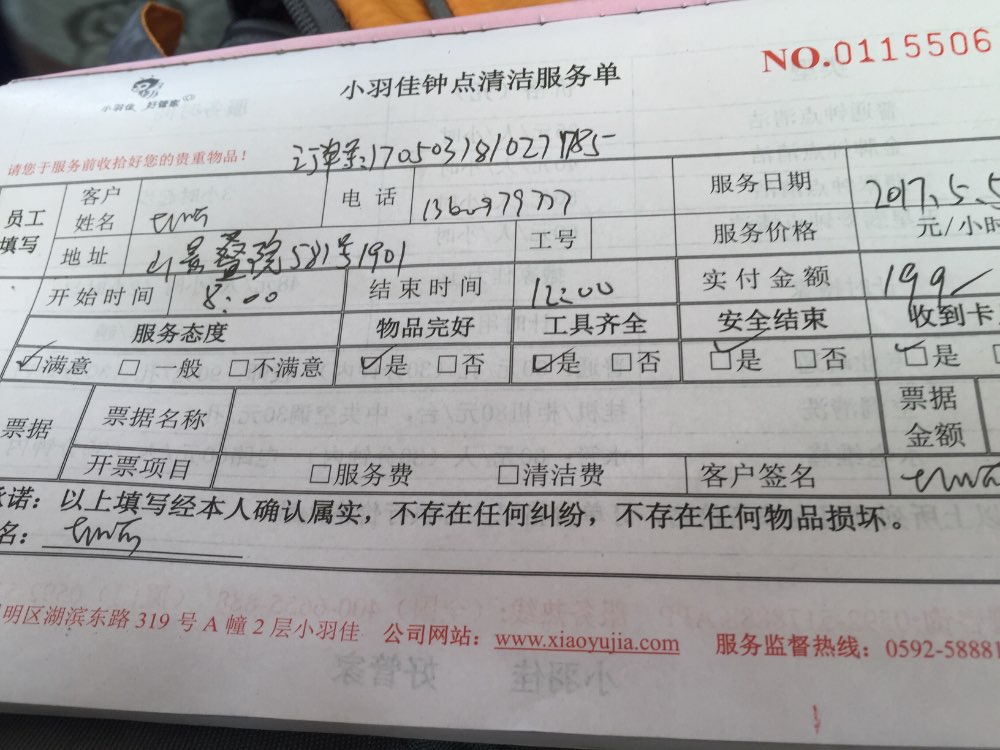 小羽佳 好管家
小羽佳钟点清洁服务单
NO.0115506
请您于服务前收拾好您的贵重物品！
订单号:170503181027785
员工填写
客户姓名
电话
服务日期 2017.5.5
地址 581号1901
工号
服务价格 元/小时
开始时间 8:00
结束时间 12:00
实付金额 199
服务态度 物品完好 工具齐全 安全结束 收到卡
☑满意 □一般 □不满意 ☑是 □否 ☑是 □否 ☑是 □否 ☑是
票据
票据名称
票据金额
开票项目 □服务费 □清洁费 客户签名
承诺：以上填写经本人确认属实，不存在任何纠纷，不存在任何物品损坏。
名：
明区湖滨东路 319 号 A 幢 2 层小羽佳 公司网站：www.xiaoyujia.com 服务监督热线：0592-58881